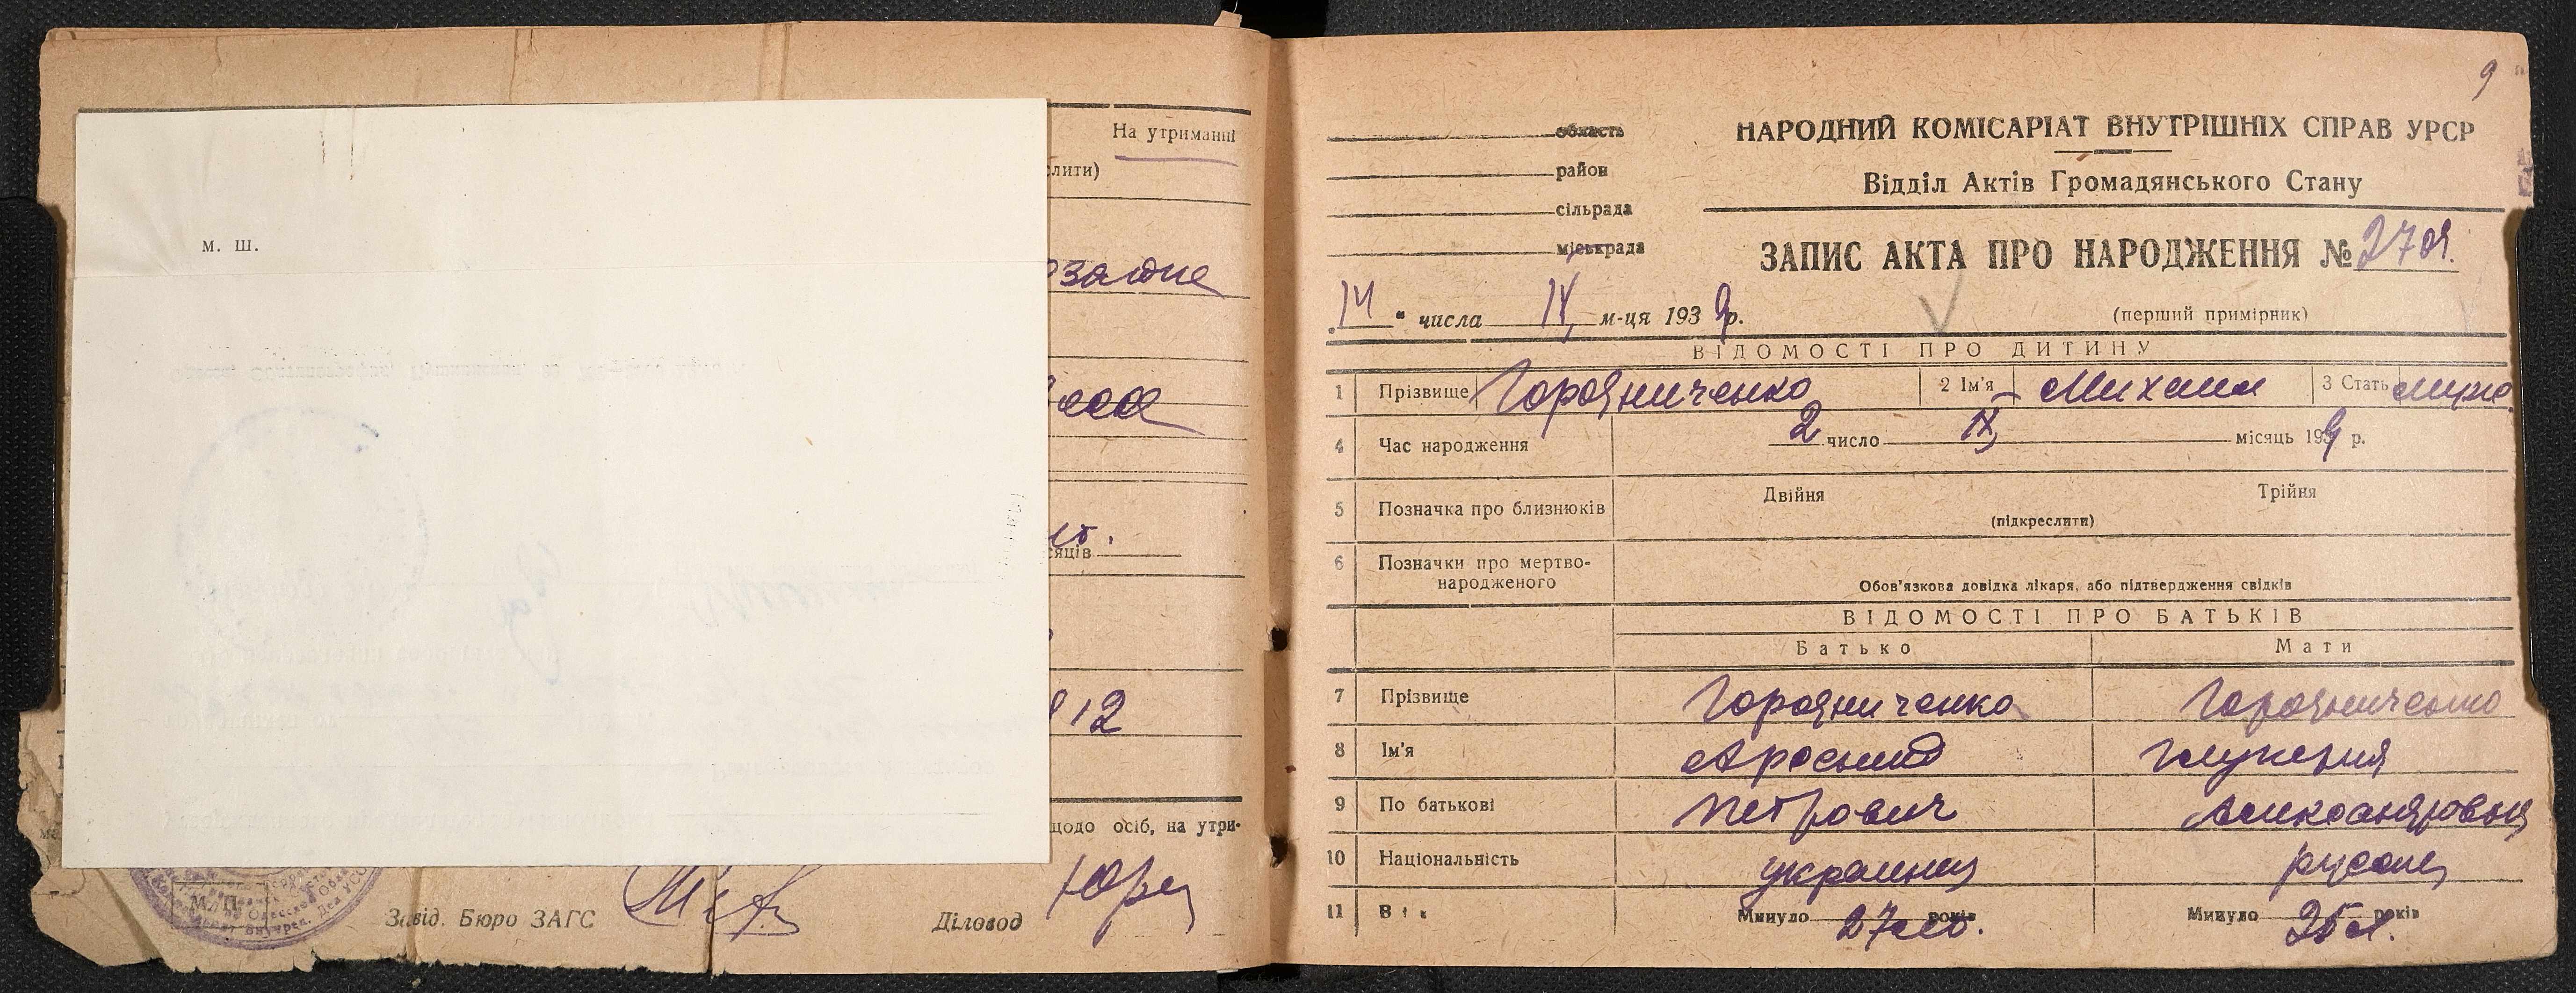 На утриманні
лити)
м. ш.
сяців
12
щодо осіб, на утри-
М. П.
Завід. Бюро ЗАГС
Діловод
9
область
район
сільрада
міськрада
НАРОДНИЙ КОМІСАРІАТ ВНУТРІШНІХ СПРАВ УРСР
Відділ Актів Громадянського Стану
ЗАПИС АКТА ПРО НАРОДЖЕННЯ №
(перший примірник)
"14" числа IX м-ця 1939 р.
ВІДОМОСТІ ПРО ДИТИНУ
1 Прізвище Городниченко 2 Ім'я Михаил 3 Стать муж.
4 Час народження 2 число IX місяць 1939 р.
5 Позначка про близнюків Двійня Трійня
(підкреслити)
6 Позначки про мертво-
народженого
Обов'язкова довідка лікаря, або підтвердження свідків
ВІДОМОСТІ ПРО БАТЬКІВ
Батько Мати
7 Прізвище Городниченко Городниченко
8 Ім'я
9 По батькові Петрович Александровна
10 Національність украинец
11 Вік Минуло 27 років Минуло 25 л. років